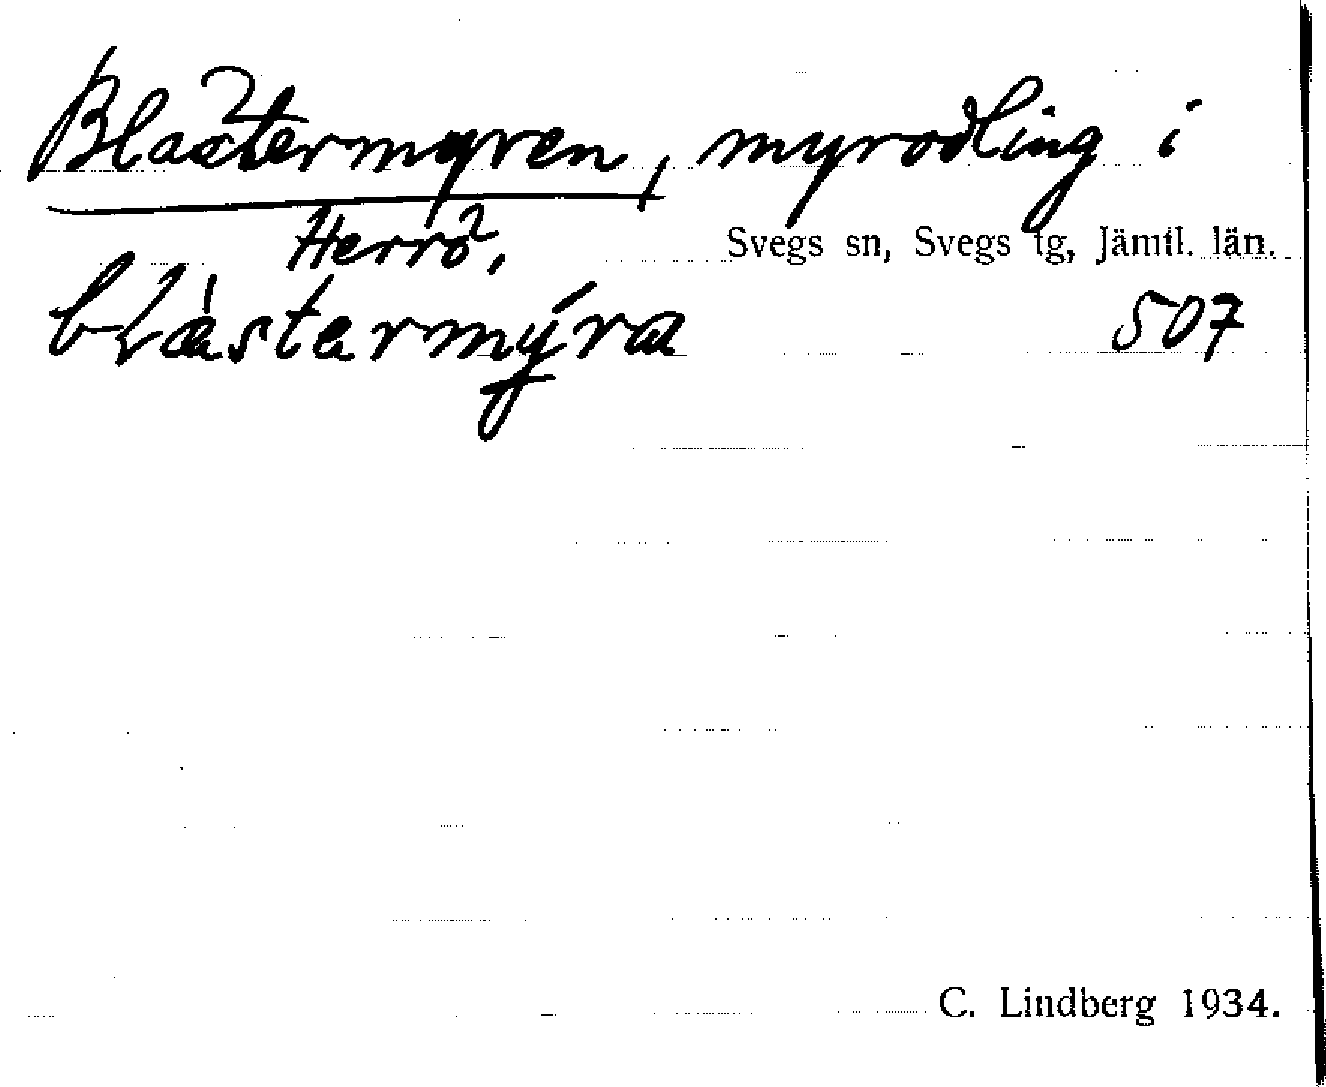 Blåstermyren, myrodling i
Herrö, Svegs sn, Svegs tg, Jämtl. län.
blàstermýra 507
C. Lindberg 1934.